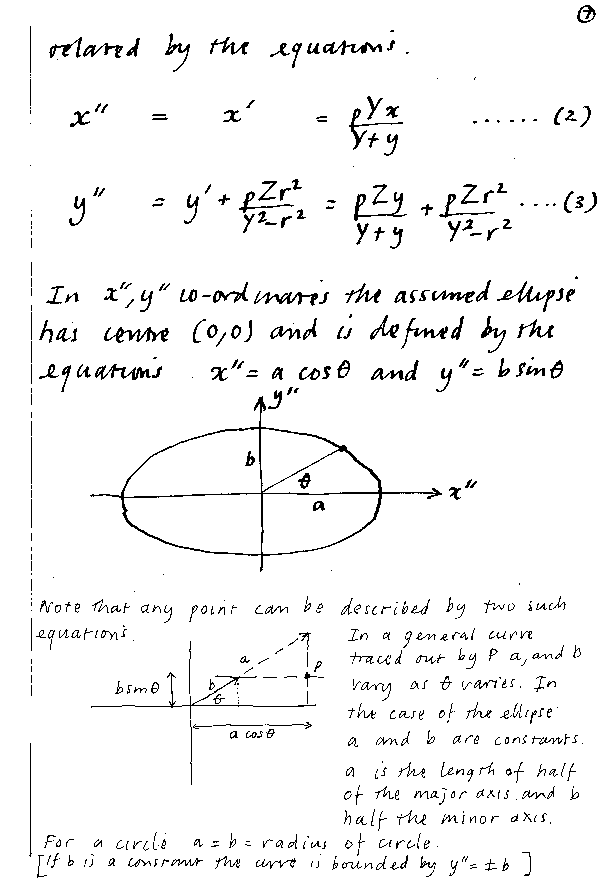 7
related by the equations.
x″ = x′ = pYx / Y+y ...... (2)
y″ = y′ + pZr² / Y²-r² = pZy / Y+y + pZr² / Y²-r² .... (3)
In x″, y″ co-ordinates the assumed ellipse
has centre (0,0) and is defined by the
equations x″ = a cosθ and y″ = b sinθ
y″
b
θ
a
x″
Note that any point can be described by two such
equations.
a
b
θ
P
b sinθ
a cosθ
In a general curve
traced out by P a, and b
vary as θ varies. In
the case of the ellipse
a and b are constants.
a is the length of half
of the major axis and b
half the minor axis.
For a circle a = b = radius of circle.
[If b is a constant the curve is bounded by y″ = ± b ]